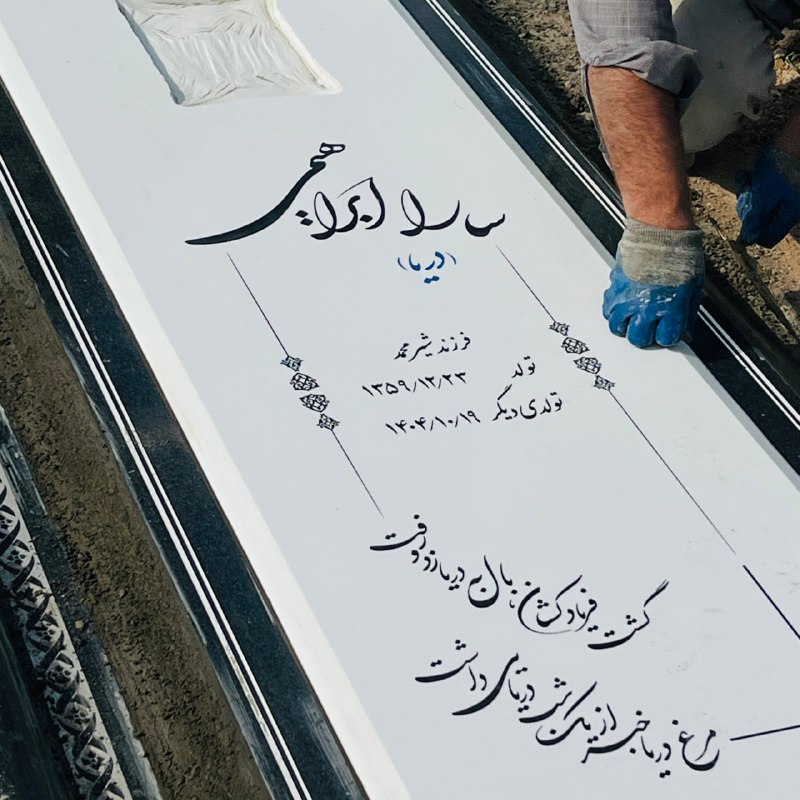 سارا ابراهیمی
(دریا)
فرزند شیرمحمد
تولد ۱۳۵۹/۱۲/۲۳
تولدی دیگر ۱۴۰۴/۱۰/۱۹
گشت فریادکشان بال به دریا زد و رفت
مرغ دریا خبر از یک شب دریایی داشت